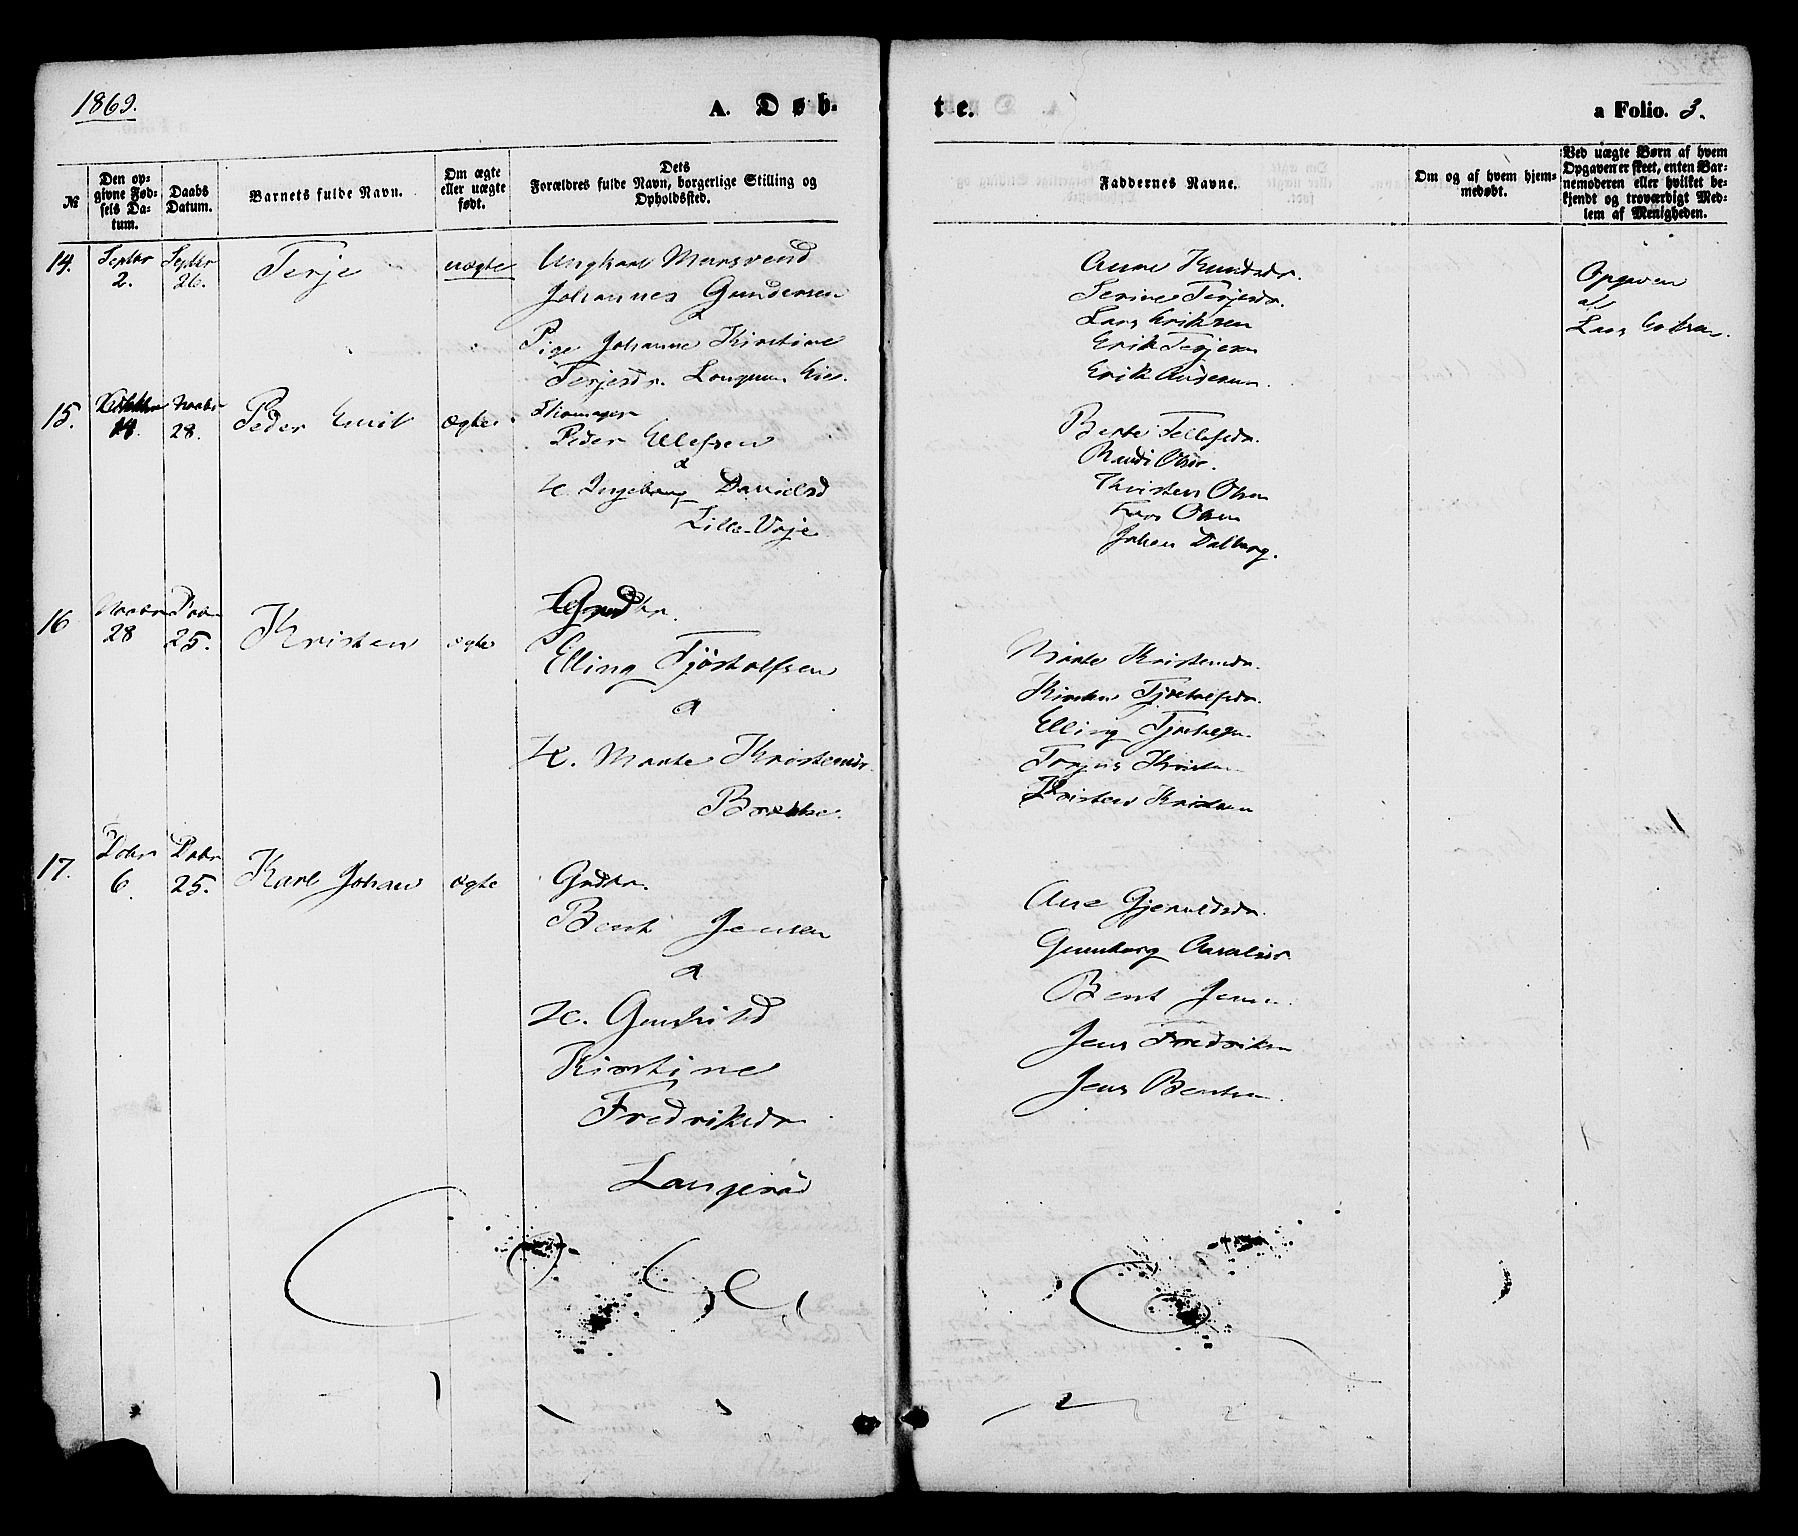 1869.
A. Døb-
te.
a Folio. 3.
№
Den op-
givne Fød-
sels Da-
tum.
Daabs
Datum.
Barnets fulde Navn.
Om ægte
eller uægte
født.
Dets
Forældres fulde Navn, borgerlige Stilling og
Opholdssted.
Faddernes Navne.
Om og af hvem hjem-
medøbt.
Ved uægte Børn af hvem
Opgaven er skeet, enten Bar-
nemoderen eller hvilket be-
kjendt og troværdigt Med-
lem af Menigheden.
14.
Septbr
2.
Septbr
26.
Terje
uægte
Ungkarl
Johannes Gundersen
&
Pige Johanne Kirstine
Terjesdr.
Anne Knudsdr.
Serine Terjesdr.
Lars Eriksen
Erik Terjesen
Erik Andersen.
Opgiven
af
Lars
15.
18.
Novbr
28.
Peder Emil
ægte
Skomager
Peder Ellefsen
&
H. Ingeborg Danielsd
Lille-Voje
Berte Tellefsdr.
Randi Olsdr.
Thorsten Olsen
Lars Olsen
Johan Dalberg.
16
Novbr
28
Decbr
25.
Kristen
ægte
Grdbr.
Elling Tjøstolfsen
&
H. Marte Kristensdr.
Brekke.
Marte Kristensdr.
Kirsten Tjøstolfsdr.
Elling Tjøstolfsen
Torjus Kristensen
Kristen Kristensen
17.
Dcbr
6.
Dcbr
25.
Karl Johan
ægte
Grdbr.
Bent Jensen
&
H. Gunhild
Kirstine
Fredriksdr
Langerød
Ane Gjeruldsdr.
Gunborg
Bent Jensen
Jens Fredriksen
Jens Bentsen.